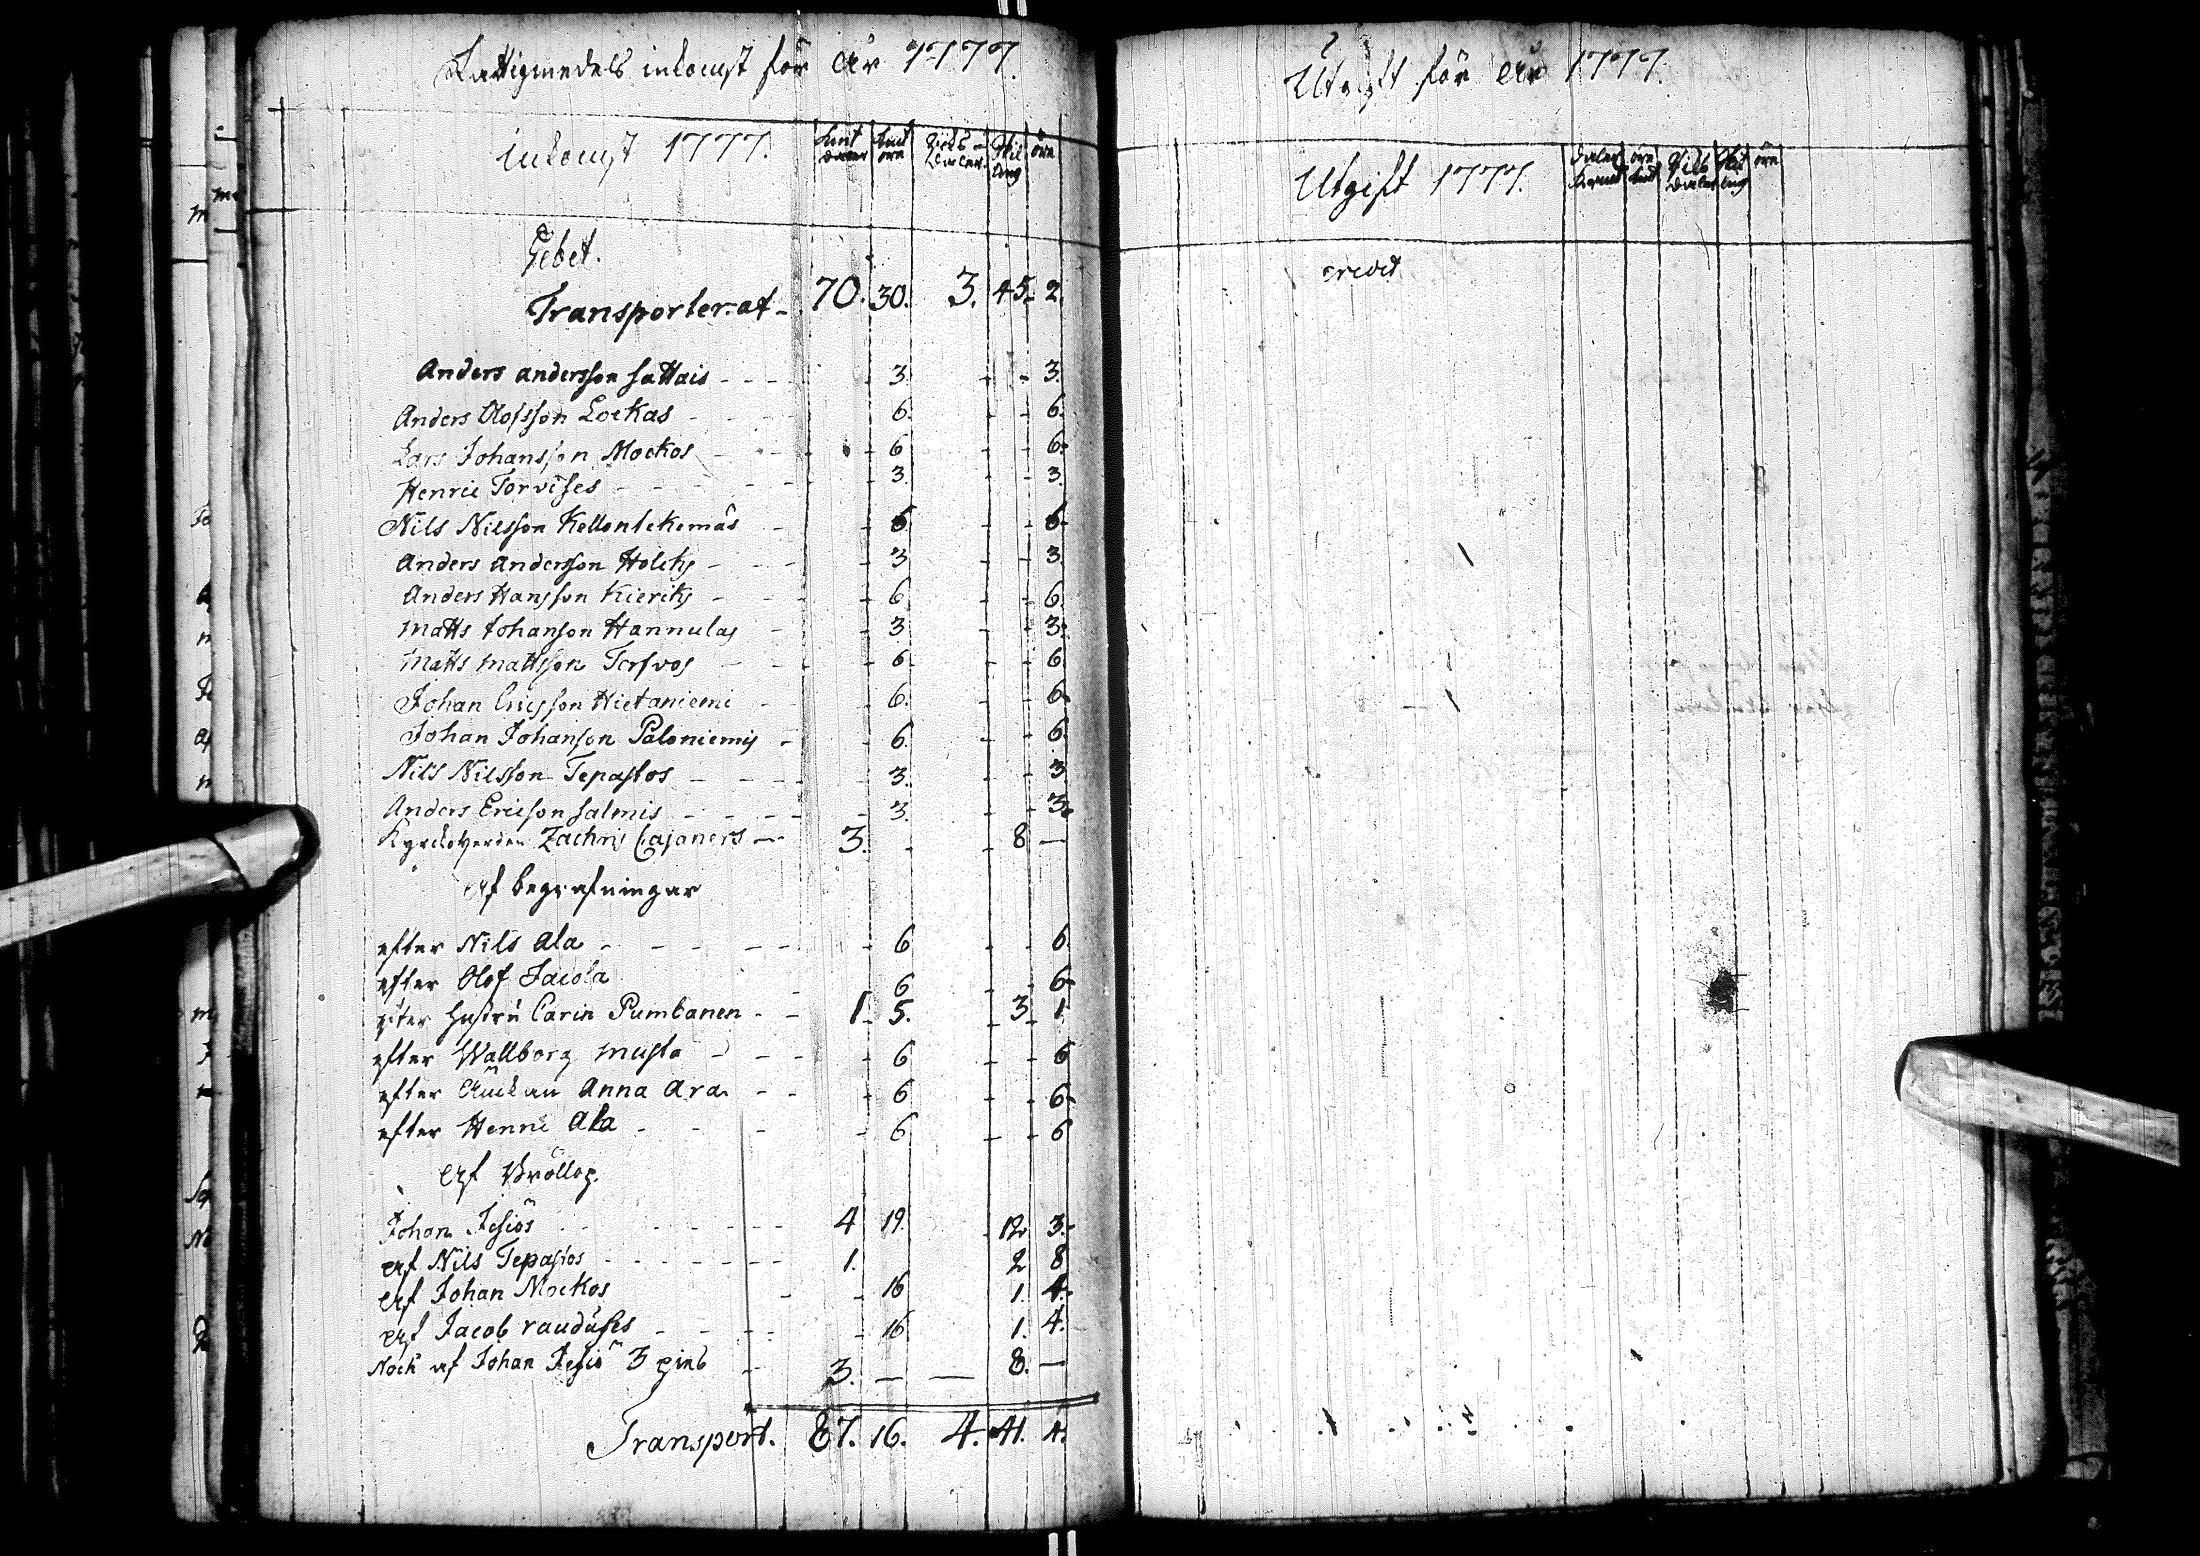 Fattigmedels inkomst för år 1777.
inkomst 1777. Kmt daler Kmt öre Riks- Daler. Skil ling öre
Debet.
Transporterat - 70. 30. 3. 45. 2.
Anders andersson sattais - - - 3. - - 3.
Anders Olofsson Lockas - - - 6. - - 6.
Lars Johansson Mockos - - - 6 - - 6.
Henric Torvises - - - 3. - - 3.
Nils Nilsson Kellontekemäs - - 6 - - 6.
Anders Andersson Holcks - - - 3 - - 3.
Anders Hansson Kierics - - - 6 - - 6.
Matts Johanson Hannulas - - 3 - - 3.
Matts mattsson Torfvos - - - 6. - - 6.
Johan Ericsson Hietaniemi - - 6. - - 6.
Johan Johanson Paloniemis - - 6. - - 6.
Nils Nilsson Tepastos - - - 3. - - 3
Anders Ericson salmis - - - 3. - - 3.
Kyrckoherden Zachris Cajaners - 3. - - 8 -
Af begrafningar
efter Nils Ala - - - 6 - - 6.
efter Olof Jacola - 6 - - 6.
efter hustru Carin Pumbanen - - 1. 5. - 3. 1.
efter Wallborg musta - - - 6 - - 6
efter änckan Anna Ara - - - 6 - - 6.
efter Henric Ala - - - 6 - - 6
Af Bröllop.
Johan Jesiös - - - 4 19. 12 3.
Af Nils Tepastos - - - 1. 2 8
Af Johan Mockos - - 16 1. 4.
Af Jacob raudases - - - 16 1. 4.
Noch af Johan Jesiö 3 - 3. - - 8. -
Transport. 87. 16. 4. 41. 4.
Utgift för år 1777.
Utgift 1777. Daler Kmt öre Kmt Riks Daler Skil ling öre
credit